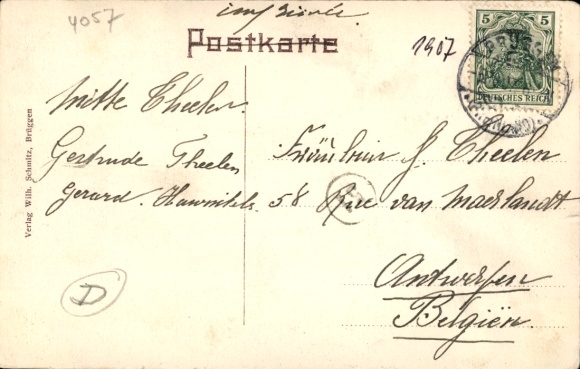 4057
Postkarte
1907
5 5
DEUTSCHES REICH
Verlag Wilh. Schmitz, Brüggen
Theelen.
Gertrude Theelen
Gerard.
Fräulein J. Theelen
58 Rue van Maerlandt
Antwerpen
Belgiën.
D